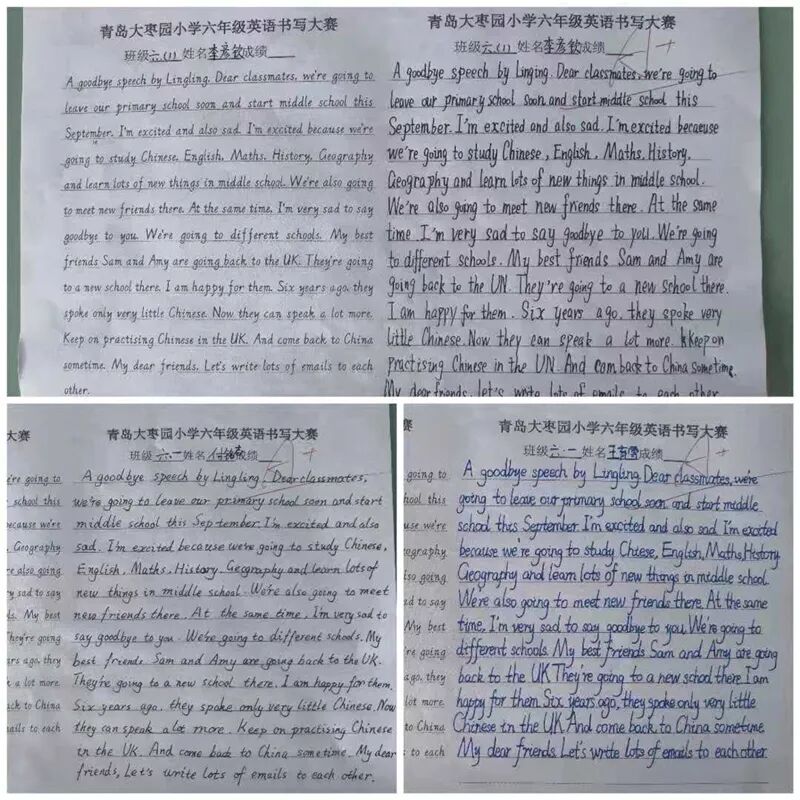 青岛大枣园小学六年级英语书写大赛
班级六.(1)姓名李彦钦成绩
A goodbye speech by Lingling. Dear classmates, we're going to
leave our primary school soon and start middle school this
September. I'm excited and also sad. I'm excited because we're
going to study Chinese, English, Maths, History, Geography
and learn lots of new things in middle school. We're also going
to meet new friends there. At the same time, I'm very sad to say
goodbye to you. We're going to different schools. My best
friends Sam and Amy are going back to the UK. They're going
to a new school there. I am happy for them. Six years ago, they
spoke only very little Chinese. Now they can speak a lot more.
Keep on practising Chinese in the UK. And come back to China
sometime. My dear friends, Let's write lots of emails to each
other.
青岛大枣园小学六年级英语书写大赛
班级六.(1)姓名李彦钦成绩
A goodbye speech by Linging. Dear classmates, we're going to
leave our primary school soon and start middle school this
September. I'm excited and also sad. I'm excited becaeue
we're going to study Chinese, English, Maths, History,
Geography and learn lots of new things in middle school.
We're also going to meet new friends there. At the same
time I'm very sad to say goodbye to you. We're going
to different schools. My best friends Sam and Amy are
going back to the UN. They're going to a new school there.
I am happy for them. Six years ago, they spoke very
little Chinese. Now they can speak a lot more. kKeep on
practising Chinese in the UN. And com back to China sometime.
My dear friends, let's write lots of emails to each other
大赛
're going to
school this
ecause we're
, Geography
're also going
y sad to say
s. My best
They're going
ars ago, they
a lot more.
ack to China
ails to each
青岛大枣园小学六年级英语书写大赛
班级六.一姓名成绩
A goodbye speech by Lingling. Dear classmates,
we're going to leave our primary school soon and start
middle school this September. I'm excited and also
sad. I'm excited because we're going to study Chinese,
English, Maths, History, Geography and learn lots of
new things in middle school. We're also going to meet
new friends there. At the same time, I'm very sad to
say goodbye to you. We're going to different schools. My
best friends Sam and Amy are going back to the UK.
They're going to a new school there. I am happy for them.
Six years ago, they spoke only very little Chinese. Now
they can speak a lot more. Keep on practising Chinese
in the UK. And come back to China sometime. My dear
friends, Let's write lots of emails to each other.
大赛
going to
ool this
use we're
eography
lso going
ad to say
My best
're going
ago, they
lot more.
to China
s to each
青岛大枣园小学六年级英语书写大赛
班级六.一姓名成绩
A goodbye speech by Lingling. Dear classmates, we're
going to leave our primary school soon and start middle
school this September. I'm excited and also sad. I'm excited
because we're going to study Chiese, English, Maths, History
Geography and learn lots of new things in middle school.
We're also going to meet new friends there. At the same
time, I'm very sad to say goodbye to you. We're going to
different schools. My best friends Sam and Amy are going
back to the UK They're going to a new school there I am
happy for them. Six Years ago, they spoke only very little
Chinese in the UK. And come back to China sometime
My dear friends. Let's write lots of emails to each other